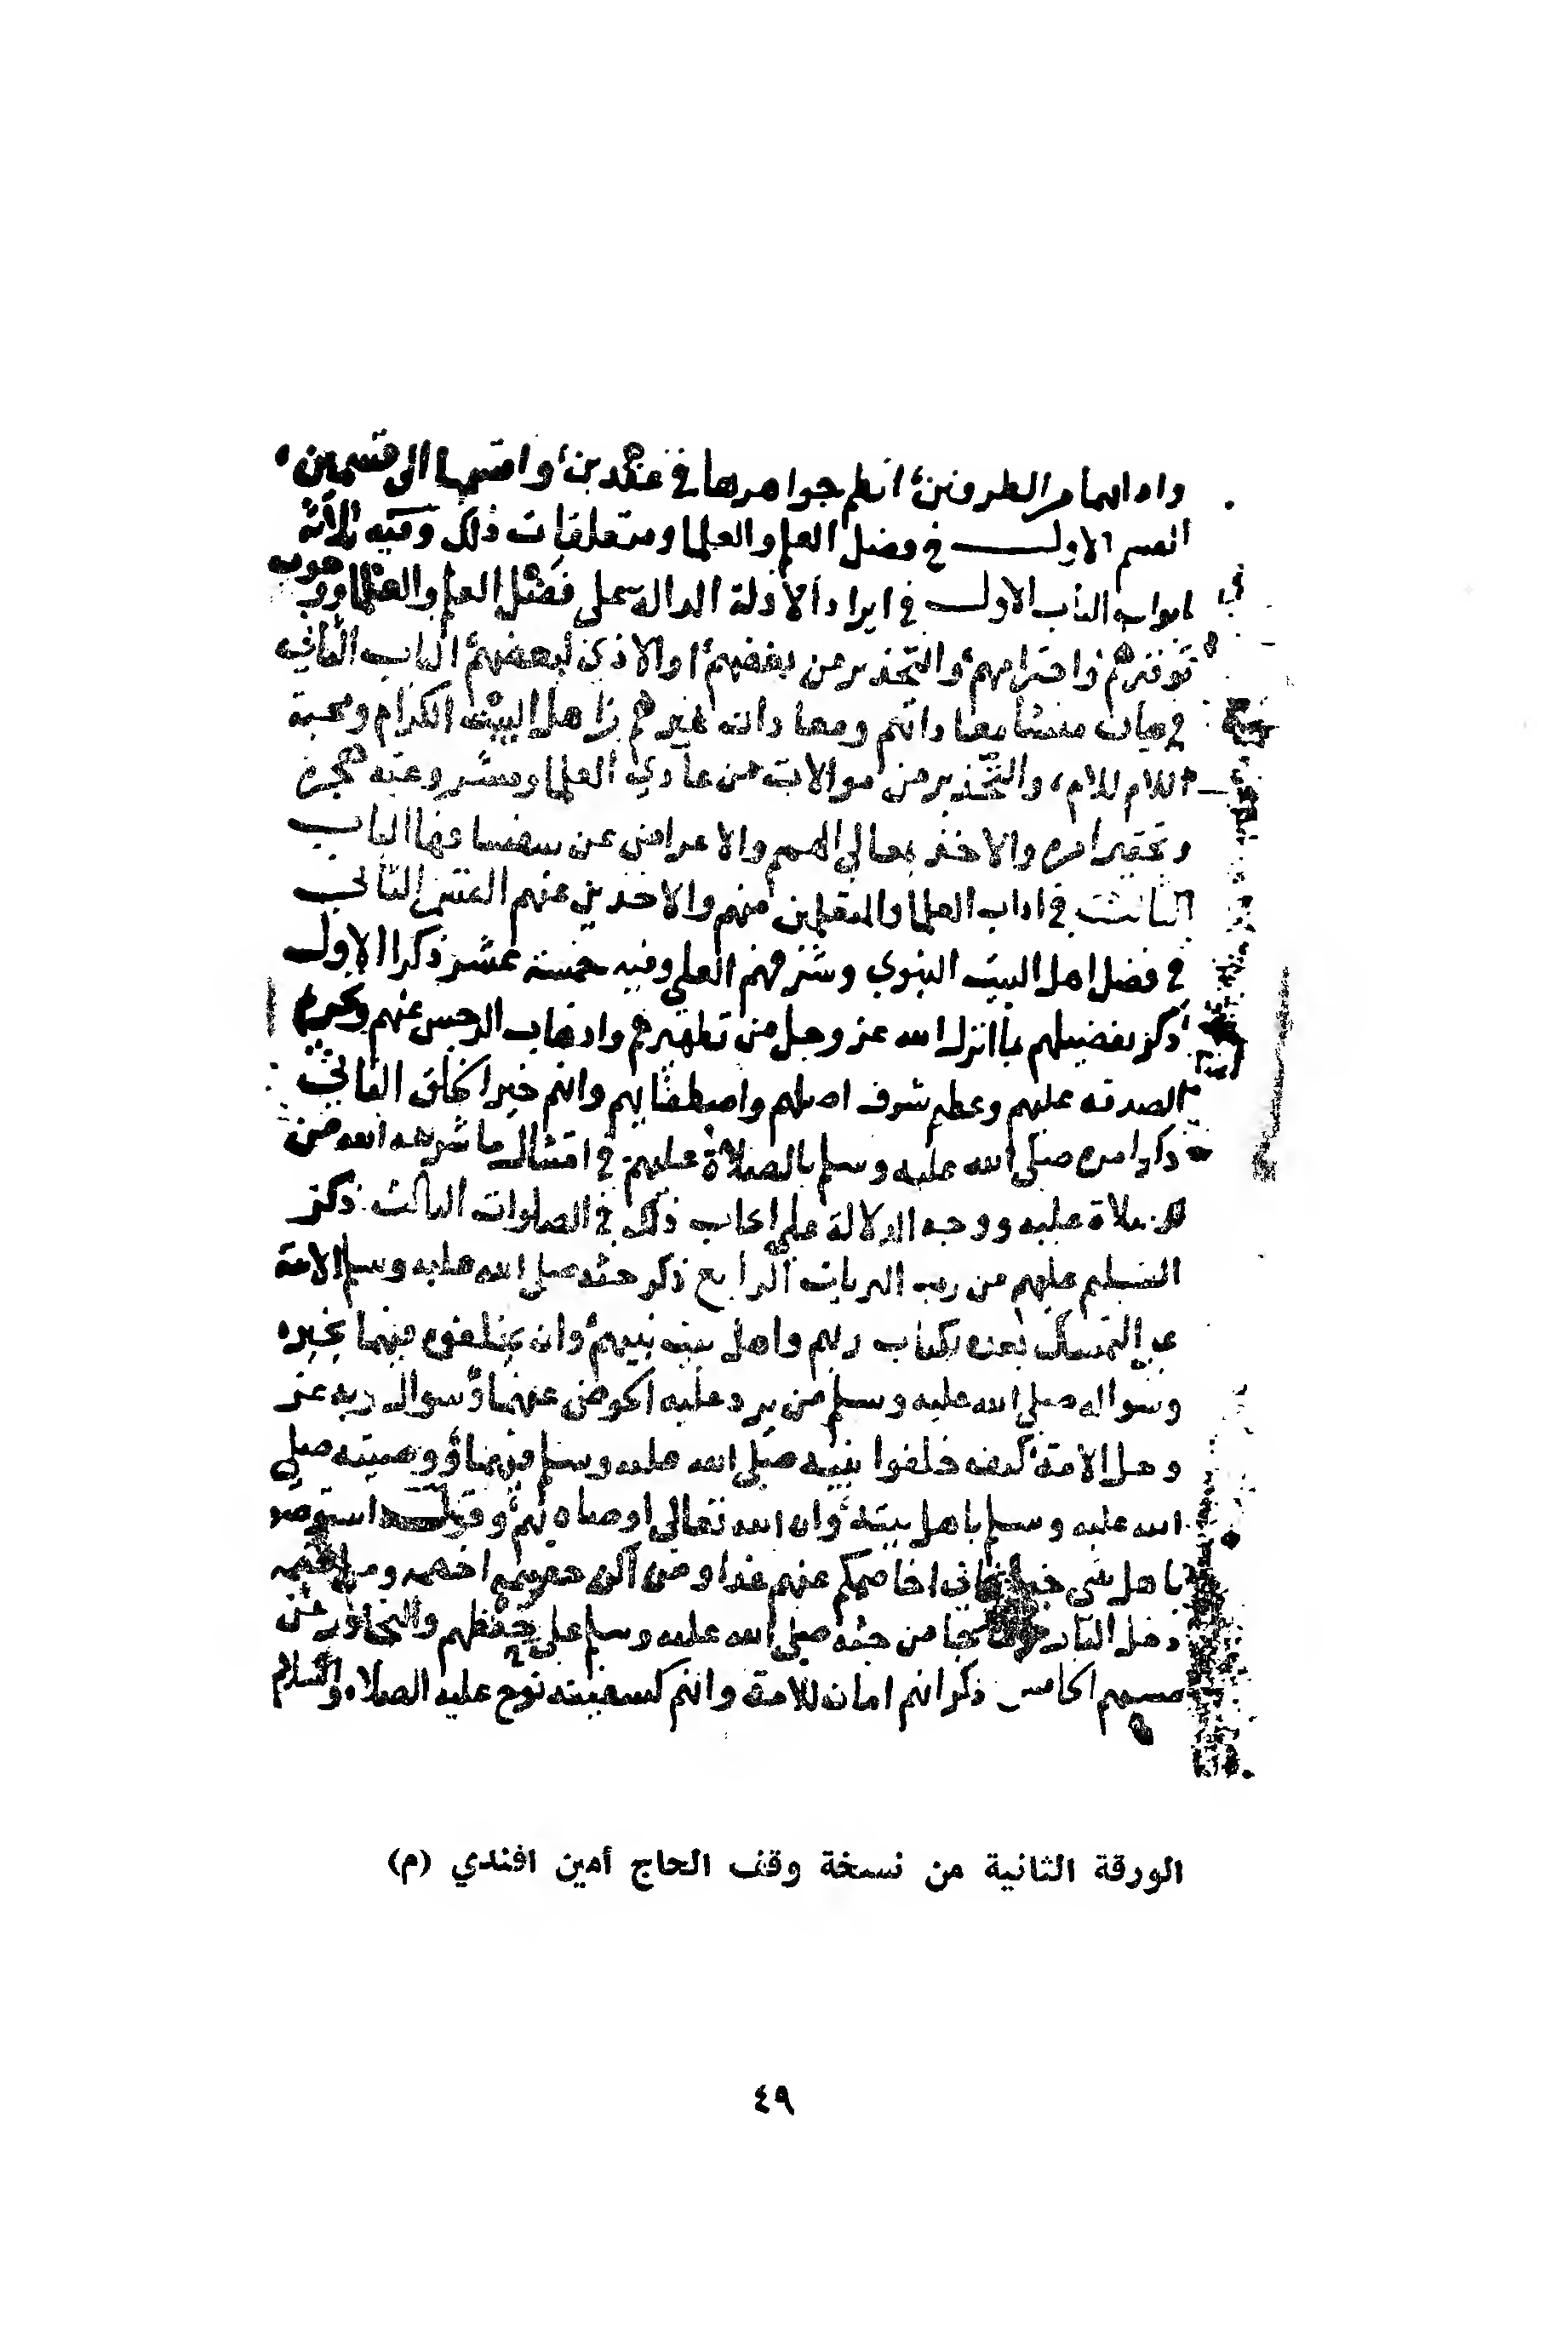 انظم جواهرها في عقدين، واقسمها الى قسمين،
القسم الاول في فضل العلم والعلما ومتعلقات ذلك وفيه ثلاثة
ابواب الباب الاول في ايراد الادلة الدالة على فضل العلم والعلما ووجوب
توقيرهم واحترامهم والتحذير من بغضهم والاذي لبعضهم الباب الثاني
في بيان منشا معاداتهم ومعاداته غيرهم اهل البيت الكرام ومحبة
والتحذير من موالات من عادي العلما ومشروعية هجره
وتحقير امره والاخذ بمعالي الهمم والاعراض عن سفسافها الباب
الثالث في اداب العلما والمتعلمين منهم والاخذين عنهم القسم الثاني
في فضل اهل البيت النبوي وشرفهم العلي وفيه خمسة عشر ذكرا الاول
ذكر تفضيلهم بما انزل الله عز وجل من تطهيرهم واذهاب الرجس عنهم وتحريم
الصدقة عليهم وعظم شرف اصلهم واصطفايهم وانهم خير الخلق الثاني
ذكر امره صلى الله عليه وسلم بالصلاة عليهم في امتثال ما شرعه الله من
الصلاة عليه ووجه الدلالة على ايجاب ذلك في الصلوات الثالث ذكر
التسليم عليهم من رب البريات الرابع ذكر حثه صلى الله عليه وسلم الامة
على التمسك بعده بكتاب ربهم واهل بيت نبيهم وان يخلفوه فيهما بخير
وسواله صلى الله عليه وسلم من يرد عليه الحوض عنهما وسوال ربه عز
وجل الامة كيف خلفوا نبيه صلى الله عليه وسلم فيهما ووصيته صلى
الله عليه وسلم باهل بيته وان الله تعالى اوصاه بهم وقوله استوصوا
باهل بيتي خيرا فاني اخاصمكم عنهم غدا ومن اكن خصمه اخصمه ومن اخصمه
دخل النار وما جا من حثه صلى الله عليه وسلم على حفظهم والتجاوز عن
مسيهم الخامس ذكر انهم امان للامة وانهم كسفينة نوح عليه الصلاة والسلام
الورقة الثانية من نسخة وقف الحاج أمين افندي (م)
٤٩